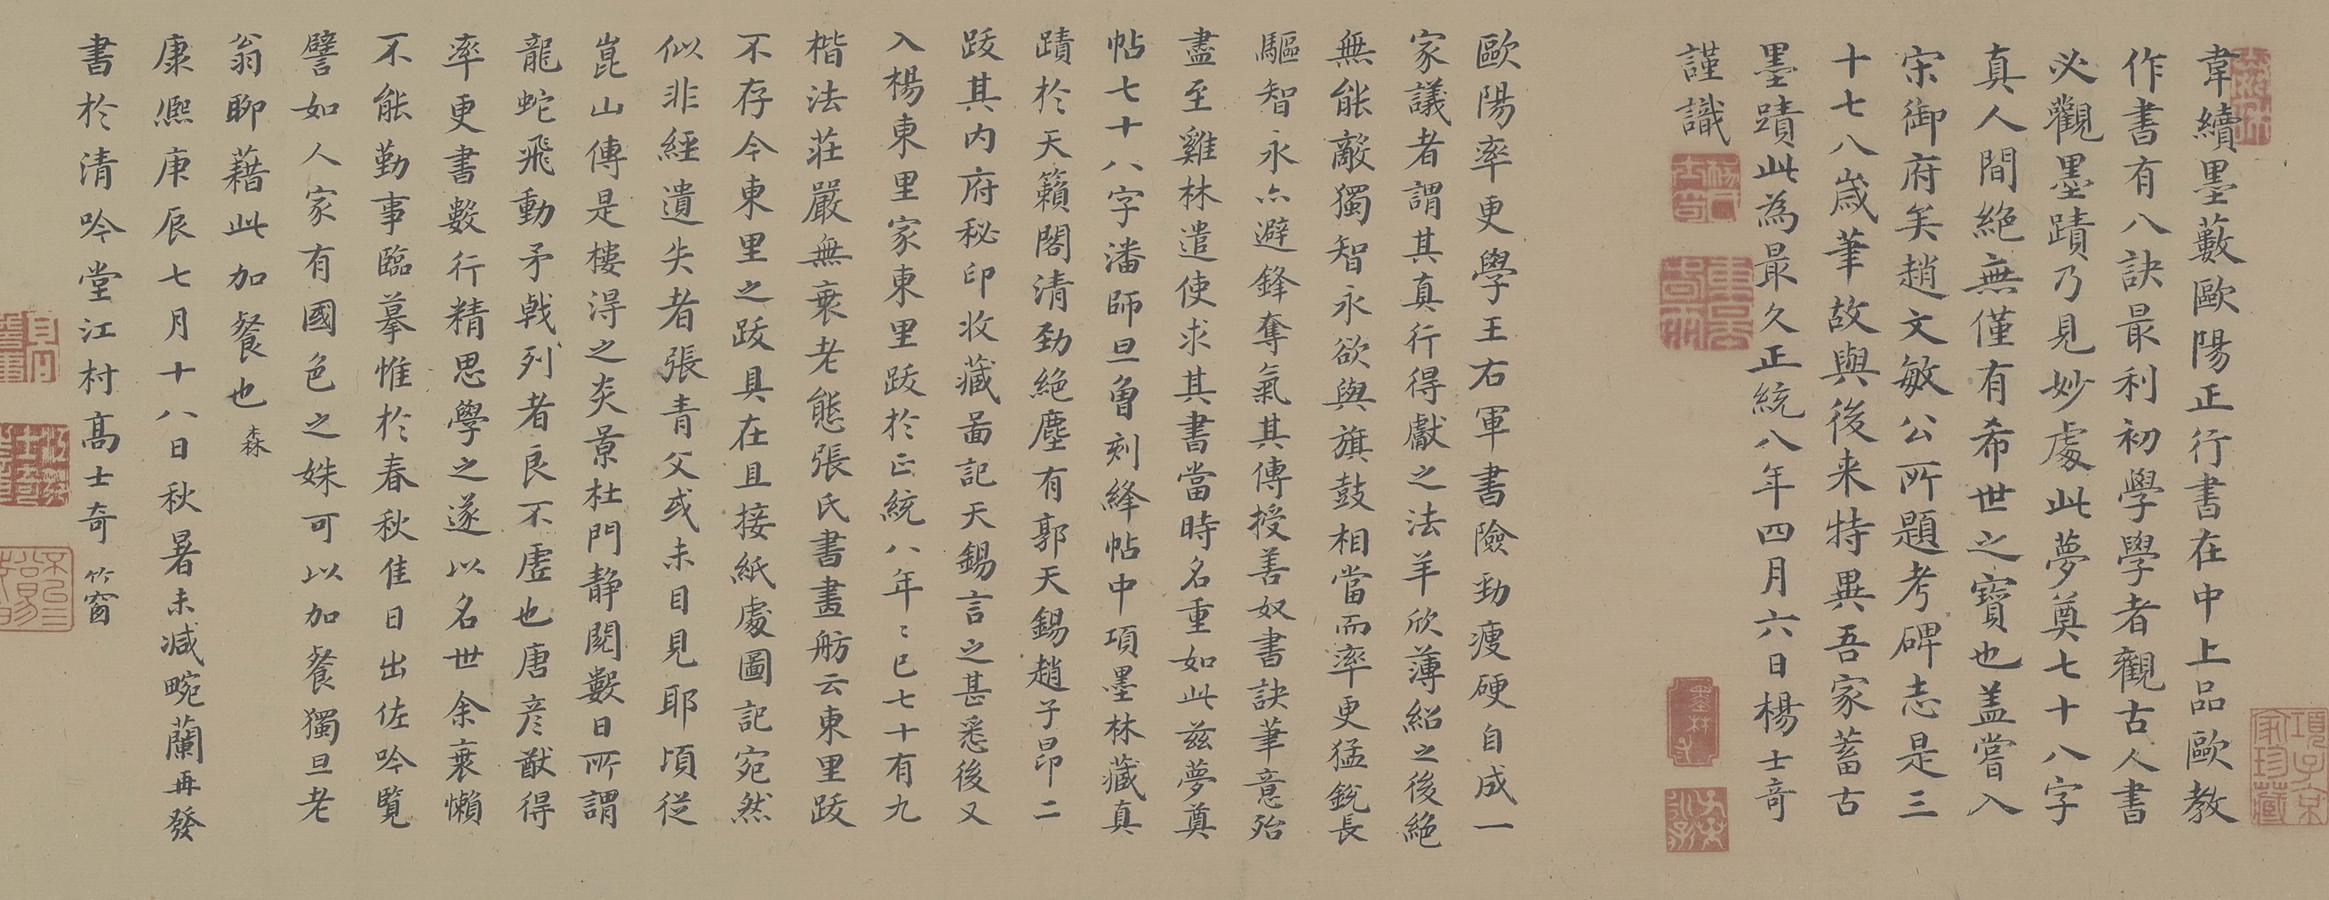 韋續墨藪歐陽正行書在中上品歐教
作書有八訣最利初學學者觀古人書
必觀墨蹟乃見妙處此夢奠七十八字
真人間絕無僅有希世之寶也盖嘗入
宋御府矣趙文敏公所題考碑志是三
十七八歲筆故與後来特異吾家蓄古
墨蹟此為最久正統八年四月六日楊士奇
謹識
歐陽率更學王右軍書險勁瘦硬自成一
家議者謂其真行得獻之法羊欣薄紹之後絕
無能敵獨智永欲與旗鼓相當而率更猛銳長
驅智永亦避鋒奪氣其傳授善奴書訣筆意殆
盡至雞林遣使求其書當時名重如此兹夢奠
帖七十八字潘師旦曾刻絳帖中項墨林藏真
蹟於天籟閣清勁絕塵有郭天錫趙子昂二
跋其内府秘印收藏啚記天錫言之甚悉後又
入楊東里家東里跋於正統八年〻已七十有九
楷法莊嚴無衰老態張氏書畫舫云東里跋
不存今東里之跋具在且接紙處圖記宛然
似非經遺失者張青父或未目見耶頃從
崑山傳是樓得之炎景杜門静閱數日所謂
龍蛇飛動矛戟列者良不虛也唐彦猷得
率更書數行精思學之遂以名世余衰懶
不能勤事臨摹惟於春秋佳日出佐吟覽
譬如人家有國色之姝可以加餐獨旦老
翁聊藉此加餐也 森
康熈庚辰七月十八日秋暑未减畹蘭再發
書於清吟堂江村高士奇 竹窗
項子京
家珍藏
墨林